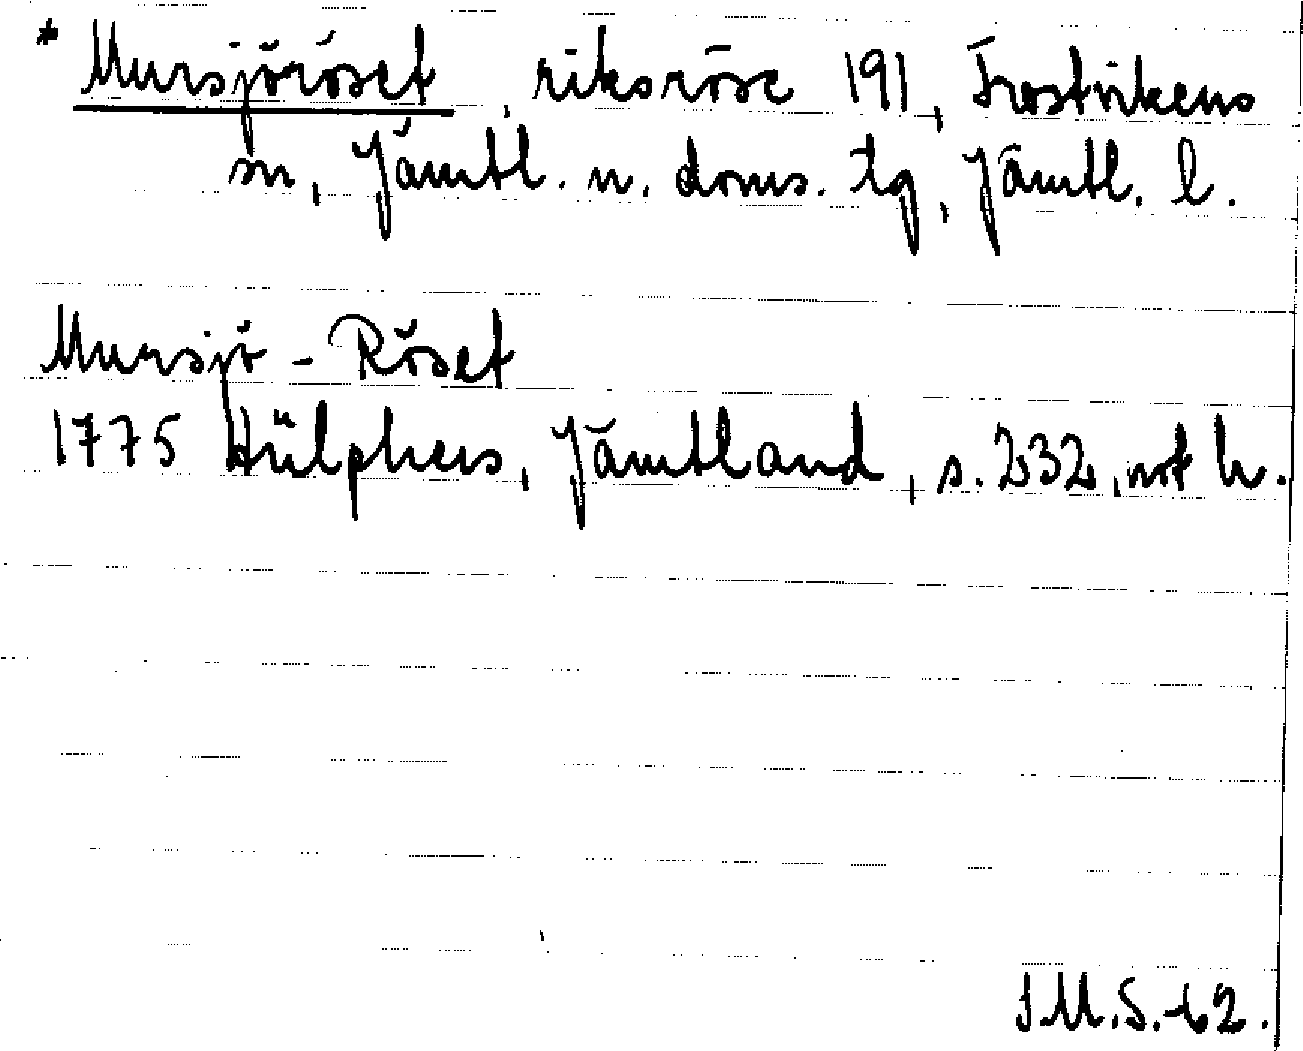 * Mursjöröset, riksröse 191, Frostvikens
sn, Jämtl. n. doms. tg, Jämtl. l.
Mursjö - Röset
1775 Hülphers, Jämtland, s. 232, not h.
J.M.S.-62.